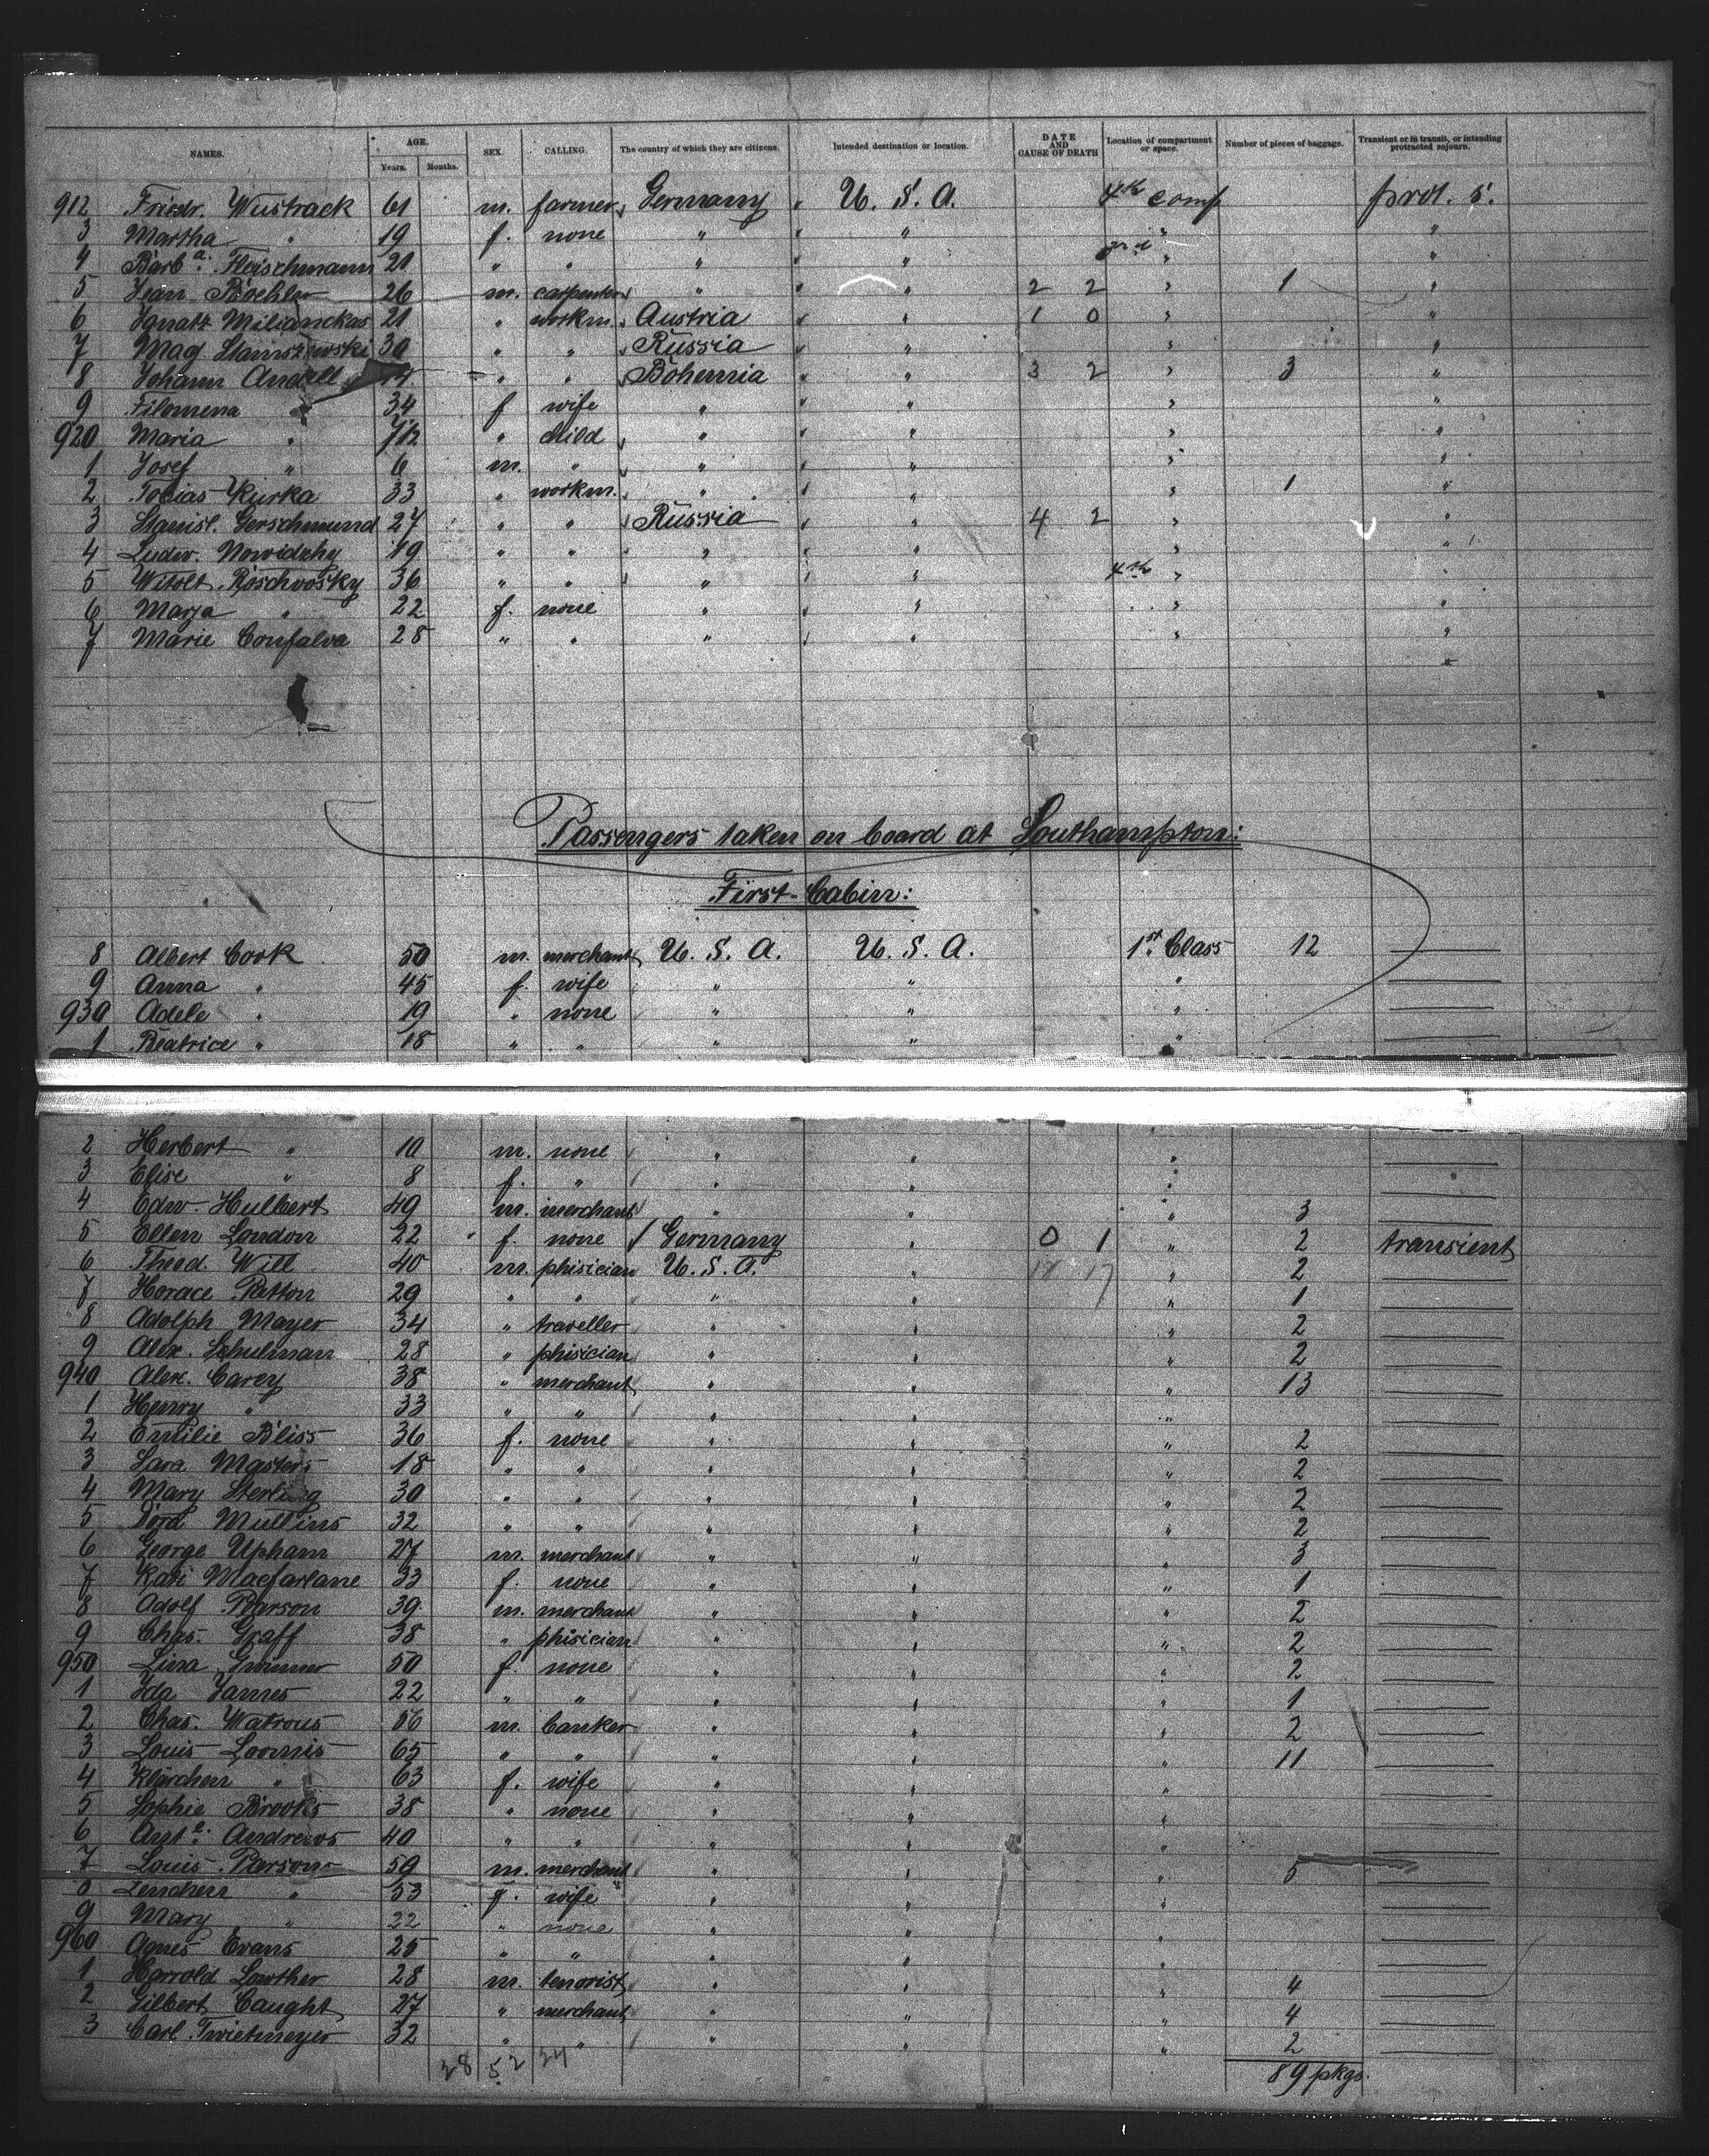 NAMES. AGE. Years. Months. SEX. CALLING. The country of which they are citizens. Intended destination or location. DATE AND CAUSE OF DEATH Location of compartment or space. Number of pieces of baggage. Transient or in transit, or intending protracted sojourn.
912 Friedr. Wustrack 61 m. farmer Germany " U. S. A. 4th comp prot. s.
3 Martha " 19 f. none " " " " "
4 Barba. Fleischmann 21 " " " " " " "
5 Jean Boehler 26 m. carpenter " " " 2 2 " 1 "
6 Ignatz Milianckas 21 " workm. Austria " " 1 0 " "
7 Mag Staniszewski 30 " " Russia " " " "
8 Johann Andell " " Bohemia " " 3 2 " 3 "
9 Filomena " 34 f wife " " " " "
920 Maria " " child " " " " "
1 Josef " 6 m. " " " " " "
2 Tobias Kurka 33 " workm. " " " " 1 "
3 Stanisl. Gerschmund 27 " " Russia " " 4 2 " "
4 Ludw. Nowidzky 19 " " " " " " "
5 Witolt Roschvosky 36 " " " " " 4th " "
6 Marja " 22 f. none " " " " "
7 Marie Confalva 28 " " " " " " "
"
Passengers taken on board at Southampton:
First-Cabin:
8 Albert Cook 50 m. merchant U. S. A. U. S. A. 1st Class 12
9 Anna " 45 f. wife " " "
930 Adele " 19 " none " " "
1 Beatrice " 18 " " " " "
2 Herbert " 10 m. none " " "
3 Elise " 8 f. " " " "
4 Edw. Hulbert 49 m. merchant " " " 3
5 Ellen London 22 f. none Germany " 0 1 " 2 transient
6 Theod. Will 40 m. phisician U. S. A. " 17 17 " 2
7 Horace Patton 29 " " " " " 1
8 Adolph Mayer 34 " traveller " " " 2
9 Alex. Schulman 28 " phisician " " " 2
940 Alex. Carey 38 " merchant " " " 13
1 Henry " 33 " " " " "
2 Emilie Bliss 36 f. none " " " 2
3 Sara Masters 18 " " " " " 2
4 Mary Sterling 30 " " " " " 2
5 Dora Mullins 32 " " " " " 2
6 George Upham 27 m. merchant " " " 3
7 Kati Macfarlane 33 f. none " " " 1
8 Adolf Parson 39 m. merchant " " " 2
9 Chas. Graff 38 " phisician " " " 2
950 Lina 50 f. none " " " 2
1 Ida James 22 " " " " " 1
2 Chas. Watrous 56 m. banker " " " 2
3 Louis Loomis 65 " " " " " 11
4 Klärchen " 63 f. wife " " "
5 Sophie Brooks 38 " none " " "
6 Ante. Andrews 40 " " " " "
7 Louis Parson 59 m. merchant " " " 5
8 Lenchen " 53 f. wife " " "
9 Mary " 22 " none " " "
960 Agnes Evans 25 " " " " "
1 Harrold Lowther 28 m. tenorist " " " 4
2 Gilbert Caught 27 " merchant " " " 4
3 Carl Twietmeyer 32 " " " " " 2
28 52 24 89 pkgs.